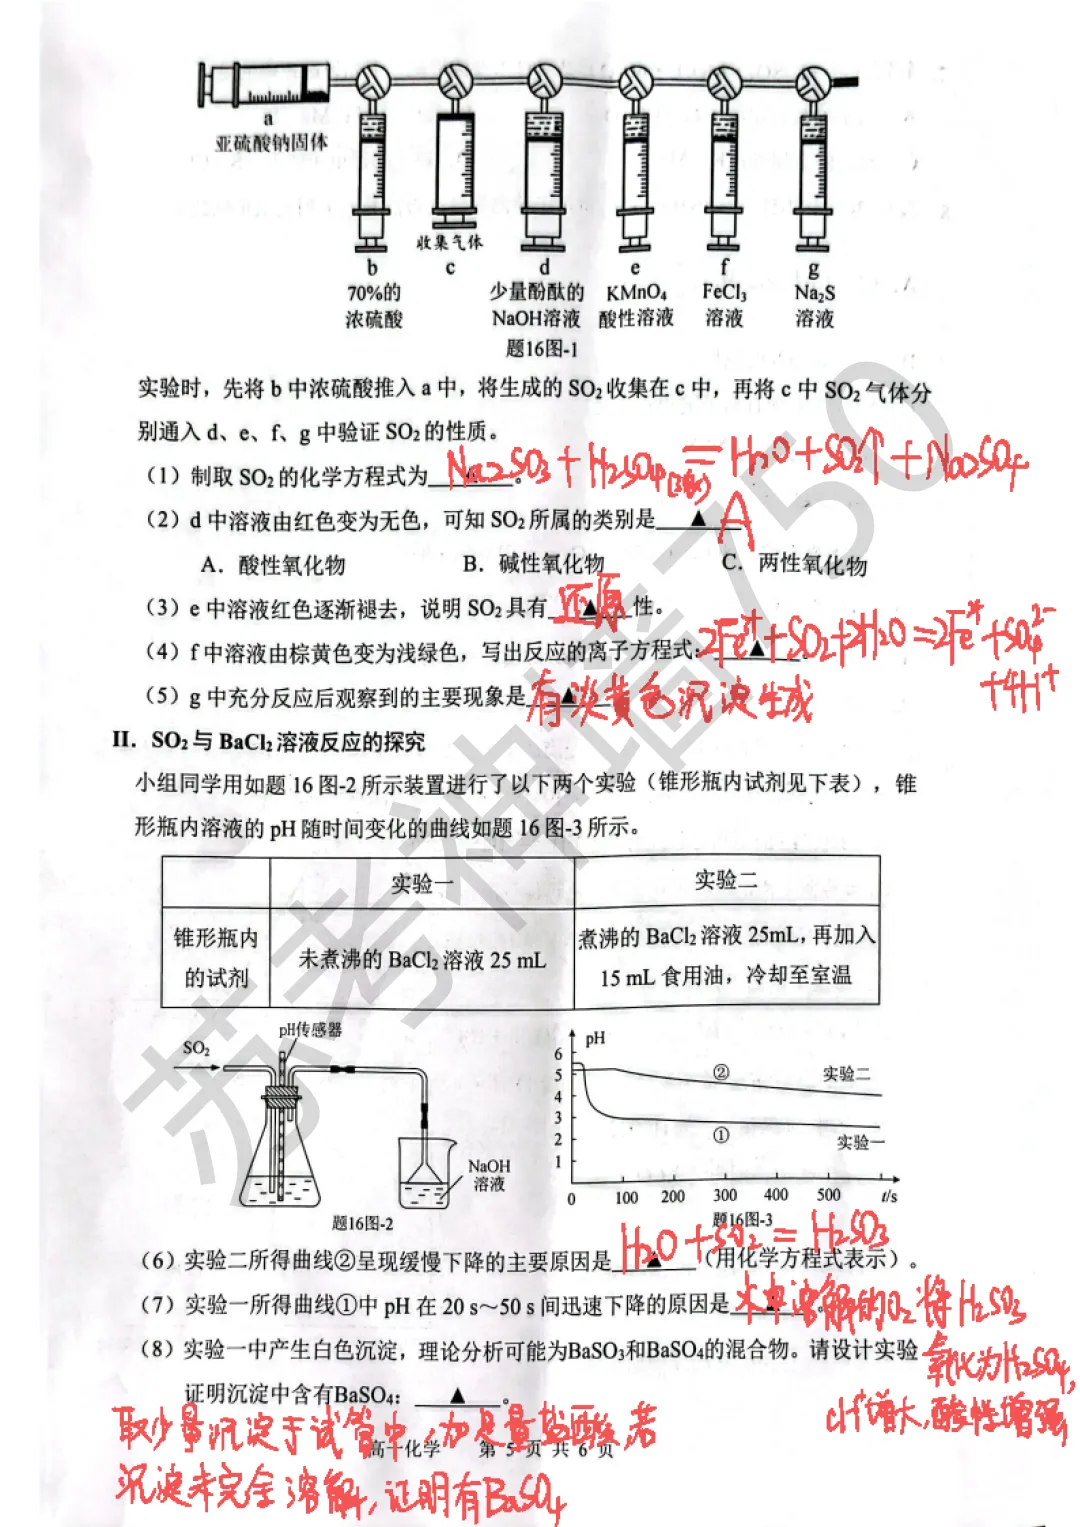 a
亚硫酸钠固体
收集气体
b c d e f g
70%的 少量酚酞的 KMnO₄ FeCl₃ Na₂S
浓硫酸 NaOH溶液 酸性溶液 溶液 溶液
题16图-1
实验时，先将 b 中浓硫酸推入 a 中，将生成的 SO₂ 收集在 c 中，再将 c 中 SO₂ 气体分
别通入 d、e、f、g 中验证 SO₂ 的性质。
（1）制取 SO₂ 的化学方程式为 Na₂SO₃+H₂SO₄(浓)=H₂O+SO₂↑+Na₂SO₄。
（2）d 中溶液由红色变为无色，可知 SO₂ 所属的类别是 ▲ A
A．酸性氧化物 B．碱性氧化物 C．两性氧化物
（3）e 中溶液红色逐渐褪去，说明 SO₂ 具有 ▲ 还原 性。
（4）f 中溶液由棕黄色变为浅绿色，写出反应的离子方程式： ▲ 。 2Fe³⁺+SO₂+2H₂O=2Fe²⁺+SO₄²⁻
+4H⁺
（5）g 中充分反应后观察到的主要现象是 ▲ 有淡黄色沉淀生成
II．SO₂ 与 BaCl₂ 溶液反应的探究
小组同学用如题 16 图-2 所示装置进行了以下两个实验（锥形瓶内试剂见下表），锥
形瓶内溶液的 pH 随时间变化的曲线如题 16 图-3 所示。
实验一 实验二
锥形瓶内
的试剂
未煮沸的 BaCl₂ 溶液 25 mL
煮沸的 BaCl₂ 溶液 25mL，再加入
15 mL 食用油，冷却至室温
pH传感器
SO₂
NaOH
溶液
题16图-2
pH
6
5
4
3
2
1
② 实验二
① 实验一
0 100 200 300 400 500 t/s
题16图-3
（6）实验二所得曲线②呈现缓慢下降的主要原因是 ▲ （用化学方程式表示）。 H₂O+SO₂=H₂SO₃
（7）实验一所得曲线①中 pH 在 20 s～50 s 间迅速下降的原因是 ▲ 。 水中溶解的O₂将H₂SO₃
氧化为H₂SO₄,
c(H⁺)增大,酸性增强
（8）实验一中产生白色沉淀，理论分析可能为BaSO₃和BaSO₄的混合物。请设计实验
证明沉淀中含有BaSO₄： ▲ 。
取少量沉淀于试管中，加足量盐酸，若
沉淀未完全溶解，证明有BaSO₄
高一化学 第 5 页 共 6 页
苏考神墙750